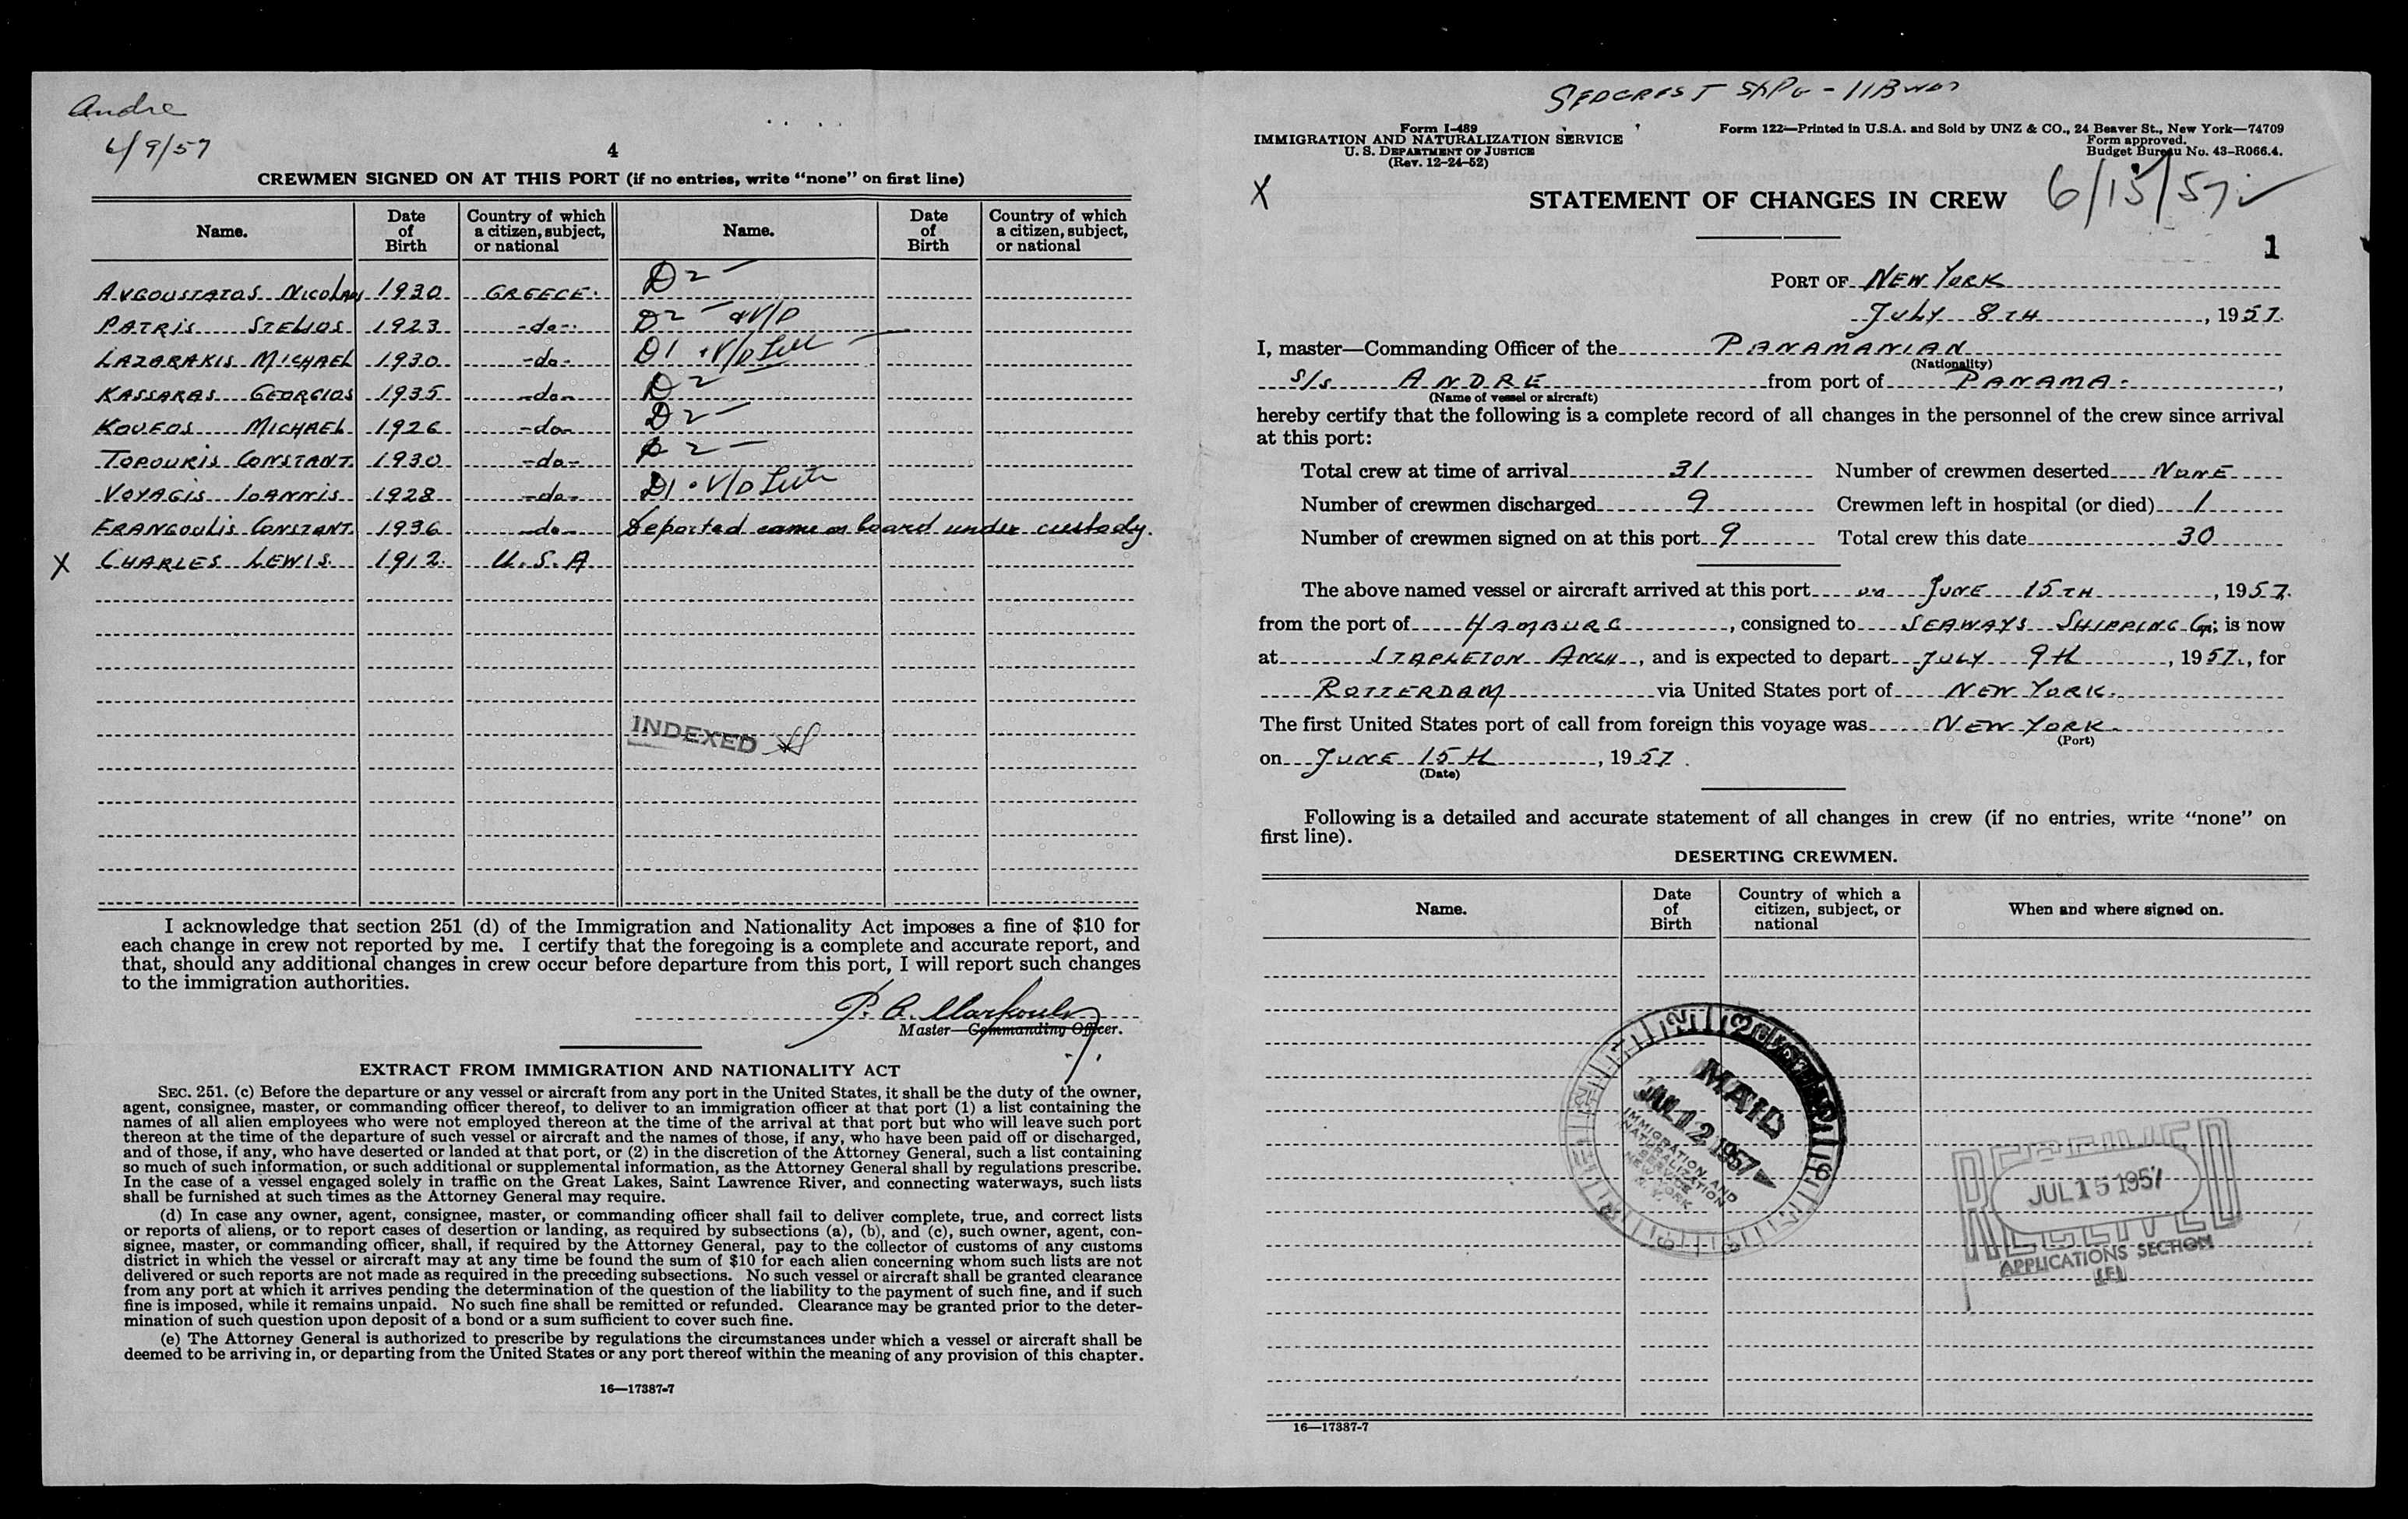 Andre
6/9/57
4
CREWMEN SIGNED ON AT THIS PORT (if no entries, write “none” on first line)
Name. Date of Birth Country of which a citizen, subject, or national Name. Date of Birth Country of which a citizen, subject, or national
AVGOUSTATOS NICOLAOS 1930 GREECE. D2 –
PATRIS STELIOS 1923 -do- D2 – V/D
LAZARAKIS MICHAEL 1930 -do- D1 V/D
KASSARAS GEORGIOS 1935 -do- D2
KOUFOS MICHAEL 1926 -do- D2 –
TOPOURIS CONSTANT. 1930 -do- D2 –
VOYAGIS IOANNIS 1928 -do- D1 V/D
FRANGOULIS CONSTANT. 1936 -do- Deported came on board under custody.
X CHARLES LEWIS. 1912. U.S.A
INDEXED
I acknowledge that section 251 (d) of the Immigration and Nationality Act imposes a fine of $10 for
each change in crew not reported by me. I certify that the foregoing is a complete and accurate report, and
that, should any additional changes in crew occur before departure from this port, I will report such changes
to the immigration authorities.
Master—Commanding Officer.
EXTRACT FROM IMMIGRATION AND NATIONALITY ACT
SEC. 251. (c) Before the departure or any vessel or aircraft from any port in the United States, it shall be the duty of the owner,
agent, consignee, master, or commanding officer thereof, to deliver to an immigration officer at that port (1) a list containing the
names of all alien employees who were not employed thereon at the time of the arrival at that port but who will leave such port
thereon at the time of the departure of such vessel or aircraft and the names of those, if any, who have been paid off or discharged,
and of those, if any, who have deserted or landed at that port, or (2) in the discretion of the Attorney General, such a list containing
so much of such information, or such additional or supplemental information, as the Attorney General shall by regulations prescribe.
In the case of a vessel engaged solely in traffic on the Great Lakes, Saint Lawrence River, and connecting waterways, such lists
shall be furnished at such times as the Attorney General may require.
(d) In case any owner, agent, consignee, master, or commanding officer shall fail to deliver complete, true, and correct lists
or reports of aliens, or to report cases of desertion or landing, as required by subsections (a), (b), and (c), such owner, agent, con-
signee, master, or commanding officer, shall, if required by the Attorney General, pay to the collector of customs of any customs
district in which the vessel or aircraft may at any time be found the sum of $10 for each alien concerning whom such lists are not
delivered or such reports are not made as required in the preceding subsections. No such vessel or aircraft shall be granted clearance
from any port at which it arrives pending the determination of the question of the liability to the payment of such fine, and if such
fine is imposed, while it remains unpaid. No such fine shall be remitted or refunded. Clearance may be granted prior to the deter-
mination of such question upon deposit of a bond or a sum sufficient to cover such fine.
(e) The Attorney General is authorized to prescribe by regulations the circumstances under which a vessel or aircraft shall be
deemed to be arriving in, or departing from the United States or any port thereof within the meaning of any provision of this chapter.
16—17387-7
Form I-489
IMMIGRATION AND NATURALIZATION SERVICE
U. S. DEPARTMENT OF JUSTICE
(Rev. 12-24-52)
Form 122—Printed in U.S.A. and Sold by UNZ & CO., 24 Beaver St., New York—74709
Form approved.
Budget Bureau No. 43-R066.4.
X
STATEMENT OF CHANGES IN CREW
6/15/57
1
PORT OF NEW YORK
JULY 8TH, 1957.
I, master—Commanding Officer of the PANAMANIAN
(Nationality)
S/S ANDRE from port of PANAMA.,
(Name of vessel or aircraft)
hereby certify that the following is a complete record of all changes in the personnel of the crew since arrival
at this port:
Total crew at time of arrival 31 Number of crewmen deserted NONE
Number of crewmen discharged 9 Crewmen left in hospital (or died) 1
Number of crewmen signed on at this port 9 Total crew this date 30
The above named vessel or aircraft arrived at this port on JUNE 15TH, 1957.
from the port of HAMBURG, consigned to SEAWAYS SHIPPING Co; is now
at STAPLETON ANCH., and is expected to depart JULY 9th, 1957., for
ROTTERDAM via United States port of NEW YORK.
The first United States port of call from foreign this voyage was NEW YORK
(Port)
on JUNE 15th, 1957.
(Date)
Following is a detailed and accurate statement of all changes in crew (if no entries, write “none” on
first line).
DESERTING CREWMEN.
Name. Date of Birth Country of which a citizen, subject, or national When and where signed on.
MAID
JUL 12 1957
IMMIGRATION AND
NATURALIZATION
SERVICE
NEW YORK
N. Y.
RECEIVED
JUL 15 1957
APPLICATIONS SECTION
16—17387-7